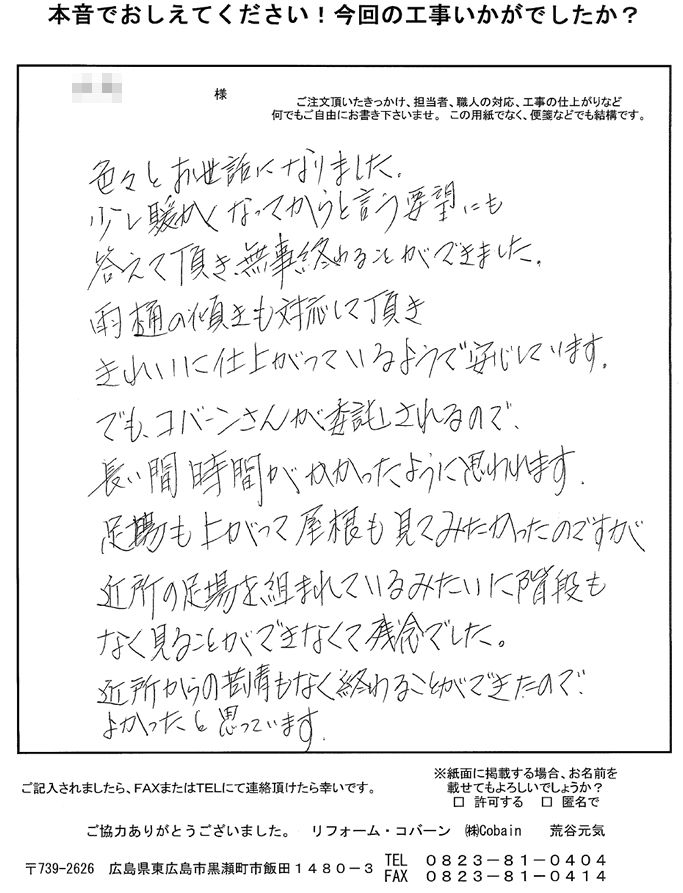 本音でおしえてください！今回の工事いかがでしたか？
様
ご注文頂いたきっかけ、担当者、職人の対応、工事の仕上がりなど
何でもご自由にお書き下さいませ。この用紙でなく、便箋などでも結構です。
色々とお世話になりました。
少し暖かくなってからと言う要望にも
答えて頂き、無事終わることができました。
雨樋の傾きも対応して頂き
きれいに仕上がっているようで安心しています。
でも、コバーンさんが委託されるので、
長い間時間がかかったように思われます。
足場も上がって屋根も見てみたかったのですが
近所の足場を組まれているみたいに階段も
なく見ることができなくて残念でした。
近所からの苦情もなく終わることができたので、
よかったと思っています。
ご記入されましたら、FAXまたはTELにて連絡頂けたら幸いです。
※紙面に掲載する場合、お名前を
載せてもよろしいでしょうか？
□ 許可する □ 匿名で
ご協力ありがとうございました。 リフォーム・コバーン ㈱Cobain 荒谷元気
〒739-2626 広島県東広島市黒瀬町市飯田１４８０－３
TEL ０８２３－８１－０４０４
FAX ０８２３－８１－０４１４